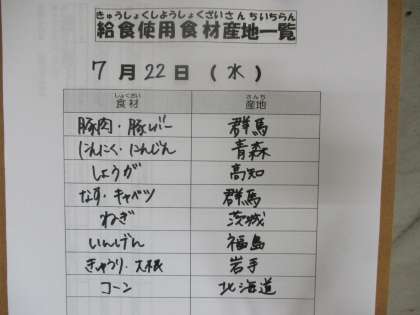 きゅうしょくしようしょくざいさんちいちらん
給食使用食材産地一覧
7月22日(水)
しょくざい さんち
食材 産地
豚肉・豚レバー 群馬
にんにく・にんじん 青森
しょうが 高知
なす・キャベツ 群馬
ねぎ 茨城
いんげん 福島
きゅうり・大根 岩手
コーン 北海道